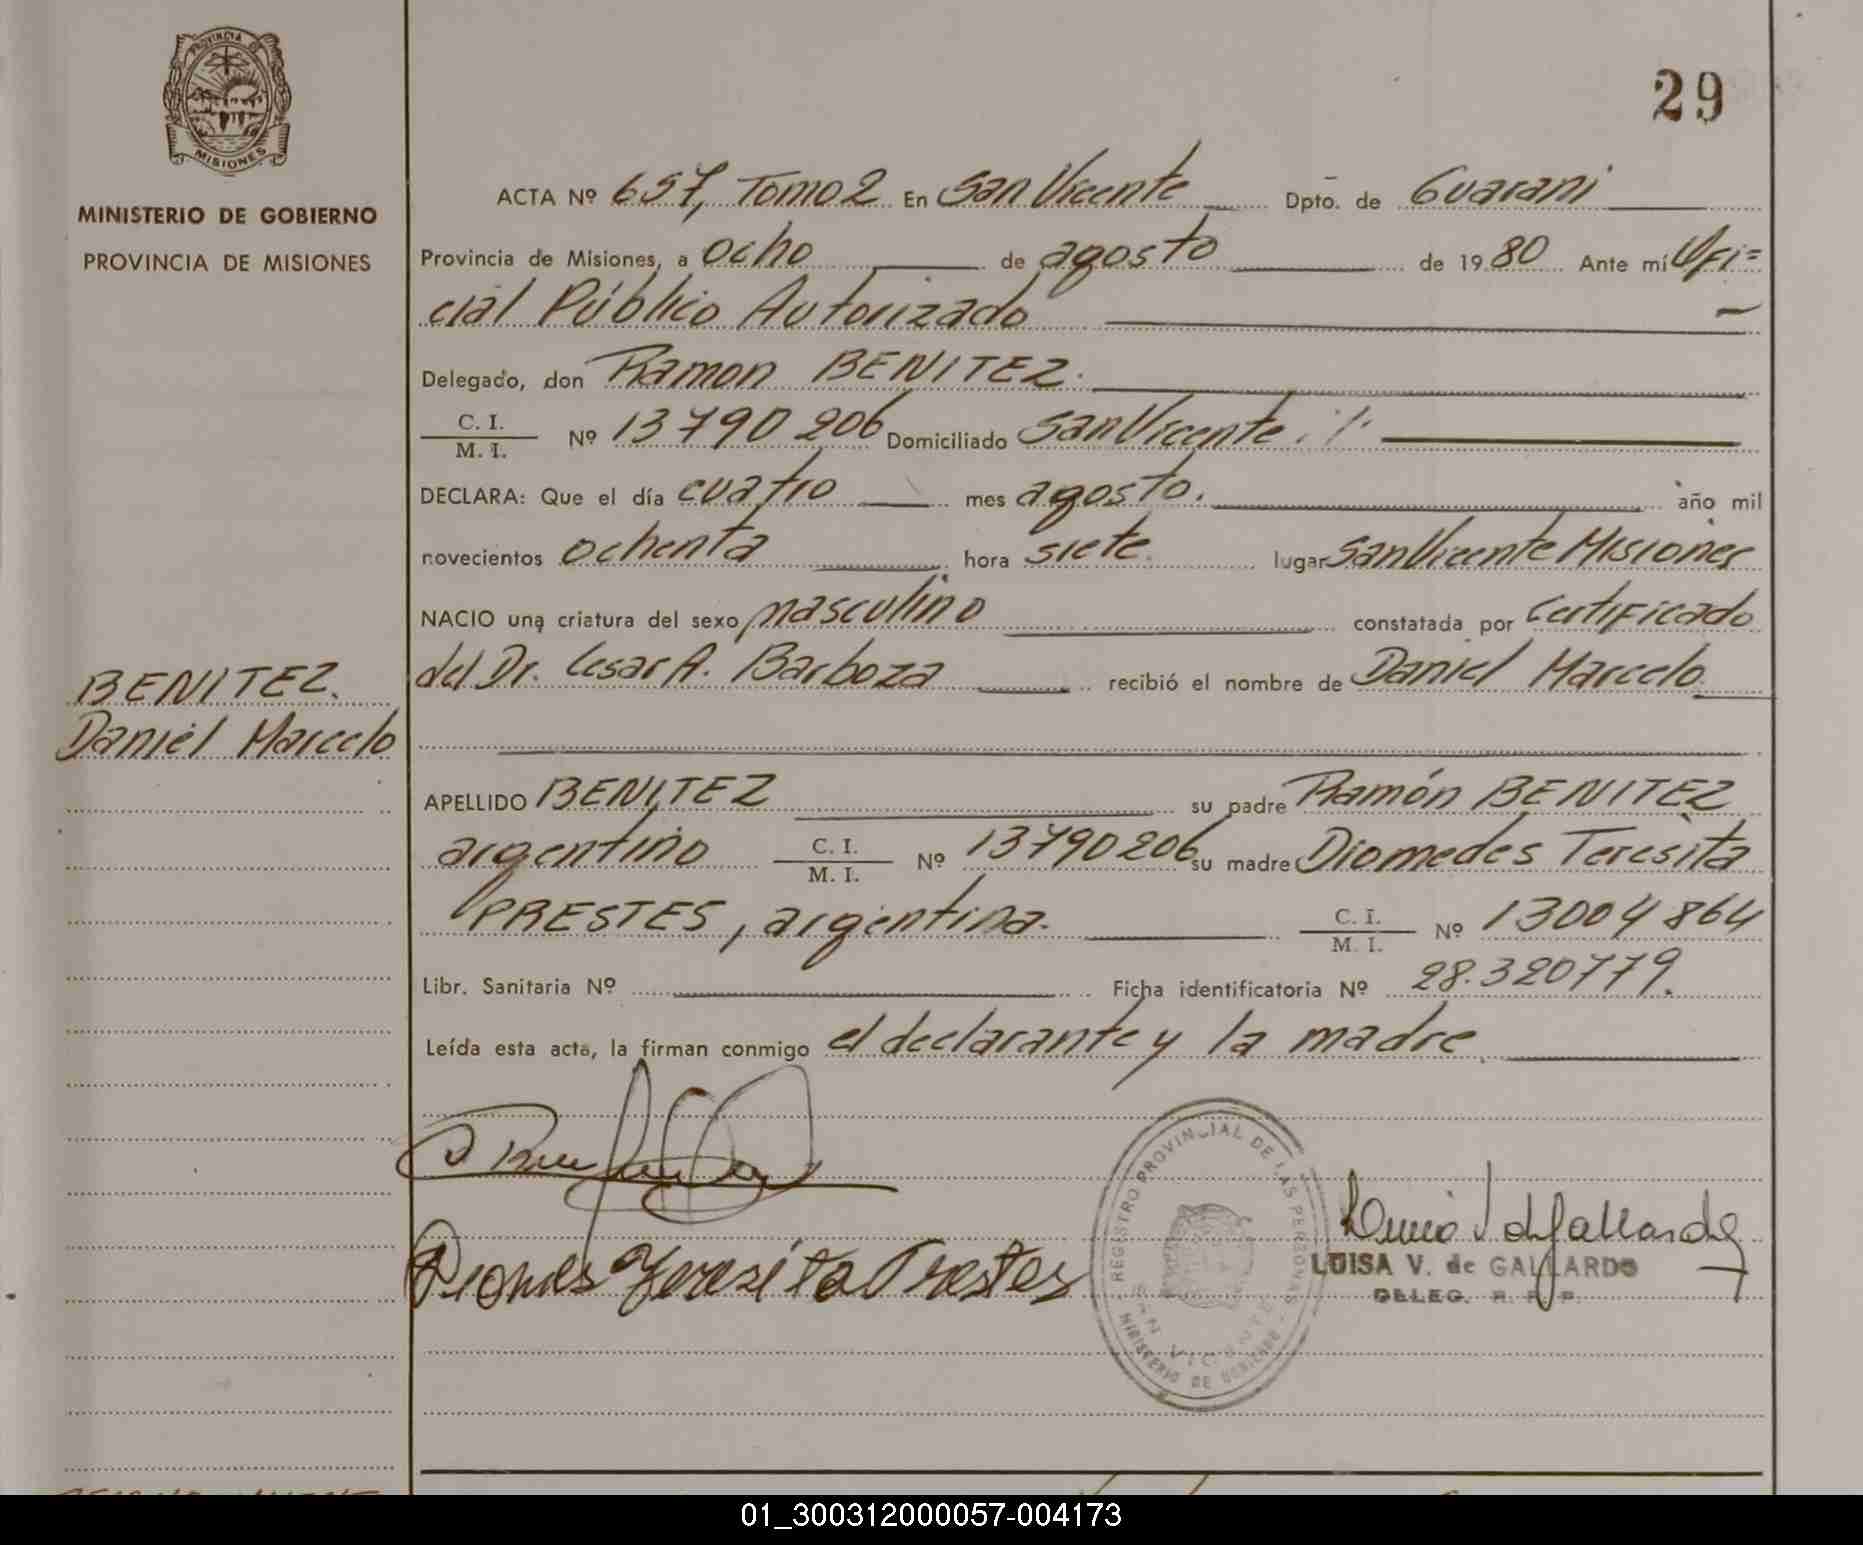 PROVINCIA DE
MISIONES
MINISTERIO DE GOBIERNO
PROVINCIA DE MISIONES
29
ACTA Nº 657, Tomo 2 En San Vicente Dpto. de Guarani
Provincia de Misiones, a ocho de agosto de 1980 Ante mí Ofi=
cial Público Autorizado
Delegado, don Ramon BENITEZ.
C. I.
M. I. Nº 13790206 Domiciliado San Vicente
DECLARA: Que el día cuatro mes agosto. año mil
novecientos ochenta hora siete. lugar San Vicente Misiones
NACIO una criatura del sexo masculino constatada por Certificado
del Dr. Cesar A. Barboza recibió el nombre de Daniel Marcelo
BENITEZ.
Daniel Marcelo
APELLIDO BENITEZ su padre Ramón BENITEZ
argentino C. I.
M. I. Nº 13790206 su madre Diomedes Teresita
PRESTES, argentina. C. I.
M. I. Nº 13004864
Libr. Sanitaria Nº Ficha identificatoria Nº 28.320779.
Leída esta acta, la firman conmigo el declarante y la madre
Teresita Prestes
REGISTRO PROVINCIAL DE LAS PERSONAS
SAN VICENTE
MINISTERIO DE GOBIERNO
LUISA V. de GALLARDO
DELEG. R. P. P.
01_300312000057-004173